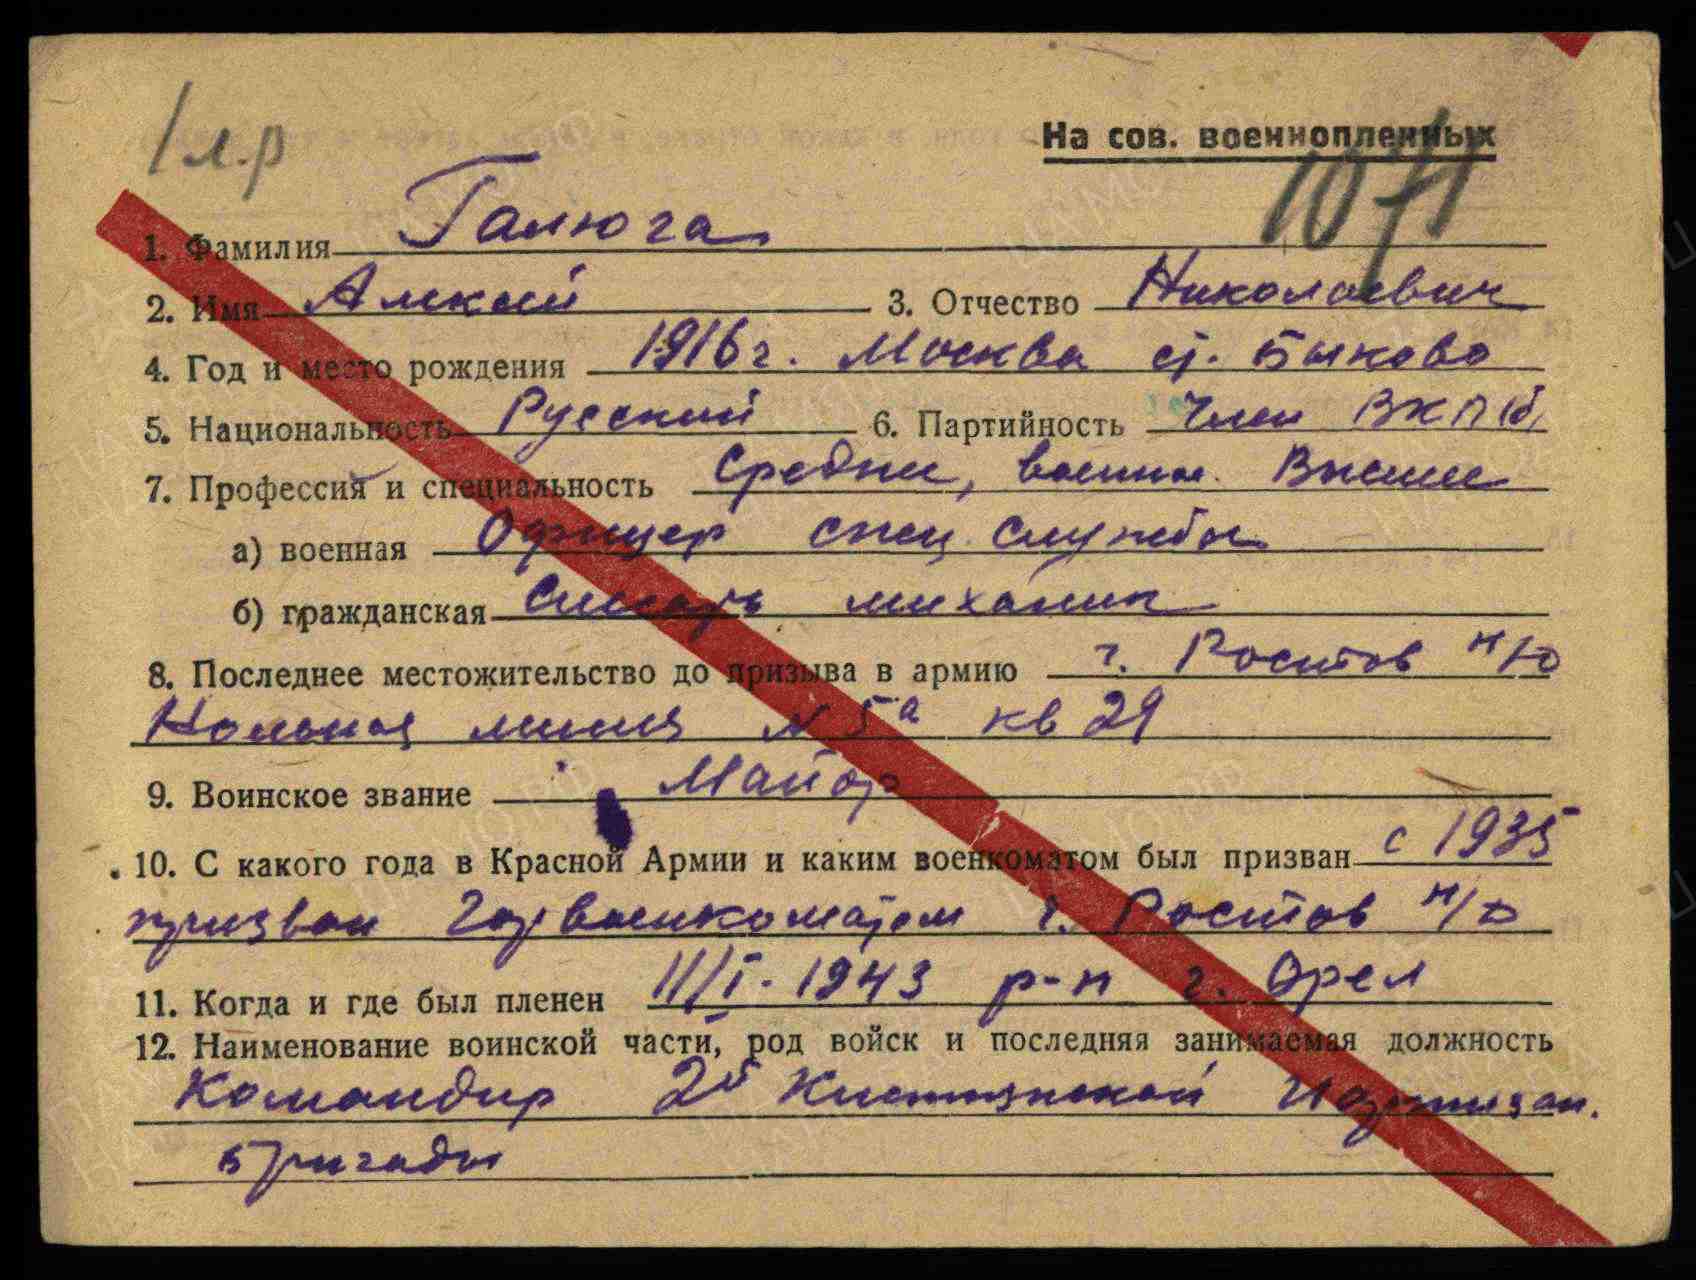 1л.р
На сов. военнопленных
1071
1. Фамилия Галюга
2. Имя Алексей 3. Отчество Николаевич
4. Год и место рождения 1916 г. Москва ст. Быково
5. Национальность Русский 6. Партийность Член ВКП(б)
7. Профессия и специальность Средние, военное Высшее
а) военная Офицер спец. службы
б) гражданская Слесарь механик
8. Последнее местожительство до призыва в армию г. Ростов н/Д
линия N 5а кв 29
9. Воинское звание Майор
10. С какого года в Красной Армии и каким военкоматом был призван с 1935
призван Горвоенкоматом г. Ростов н/Д
11. Когда и где был пленен 11/I-1943 р-н г. Орел
12. Наименование воинской части, род войск и последняя занимаемая должность
Командир 2й Клетнянской Партизан.
Бригады